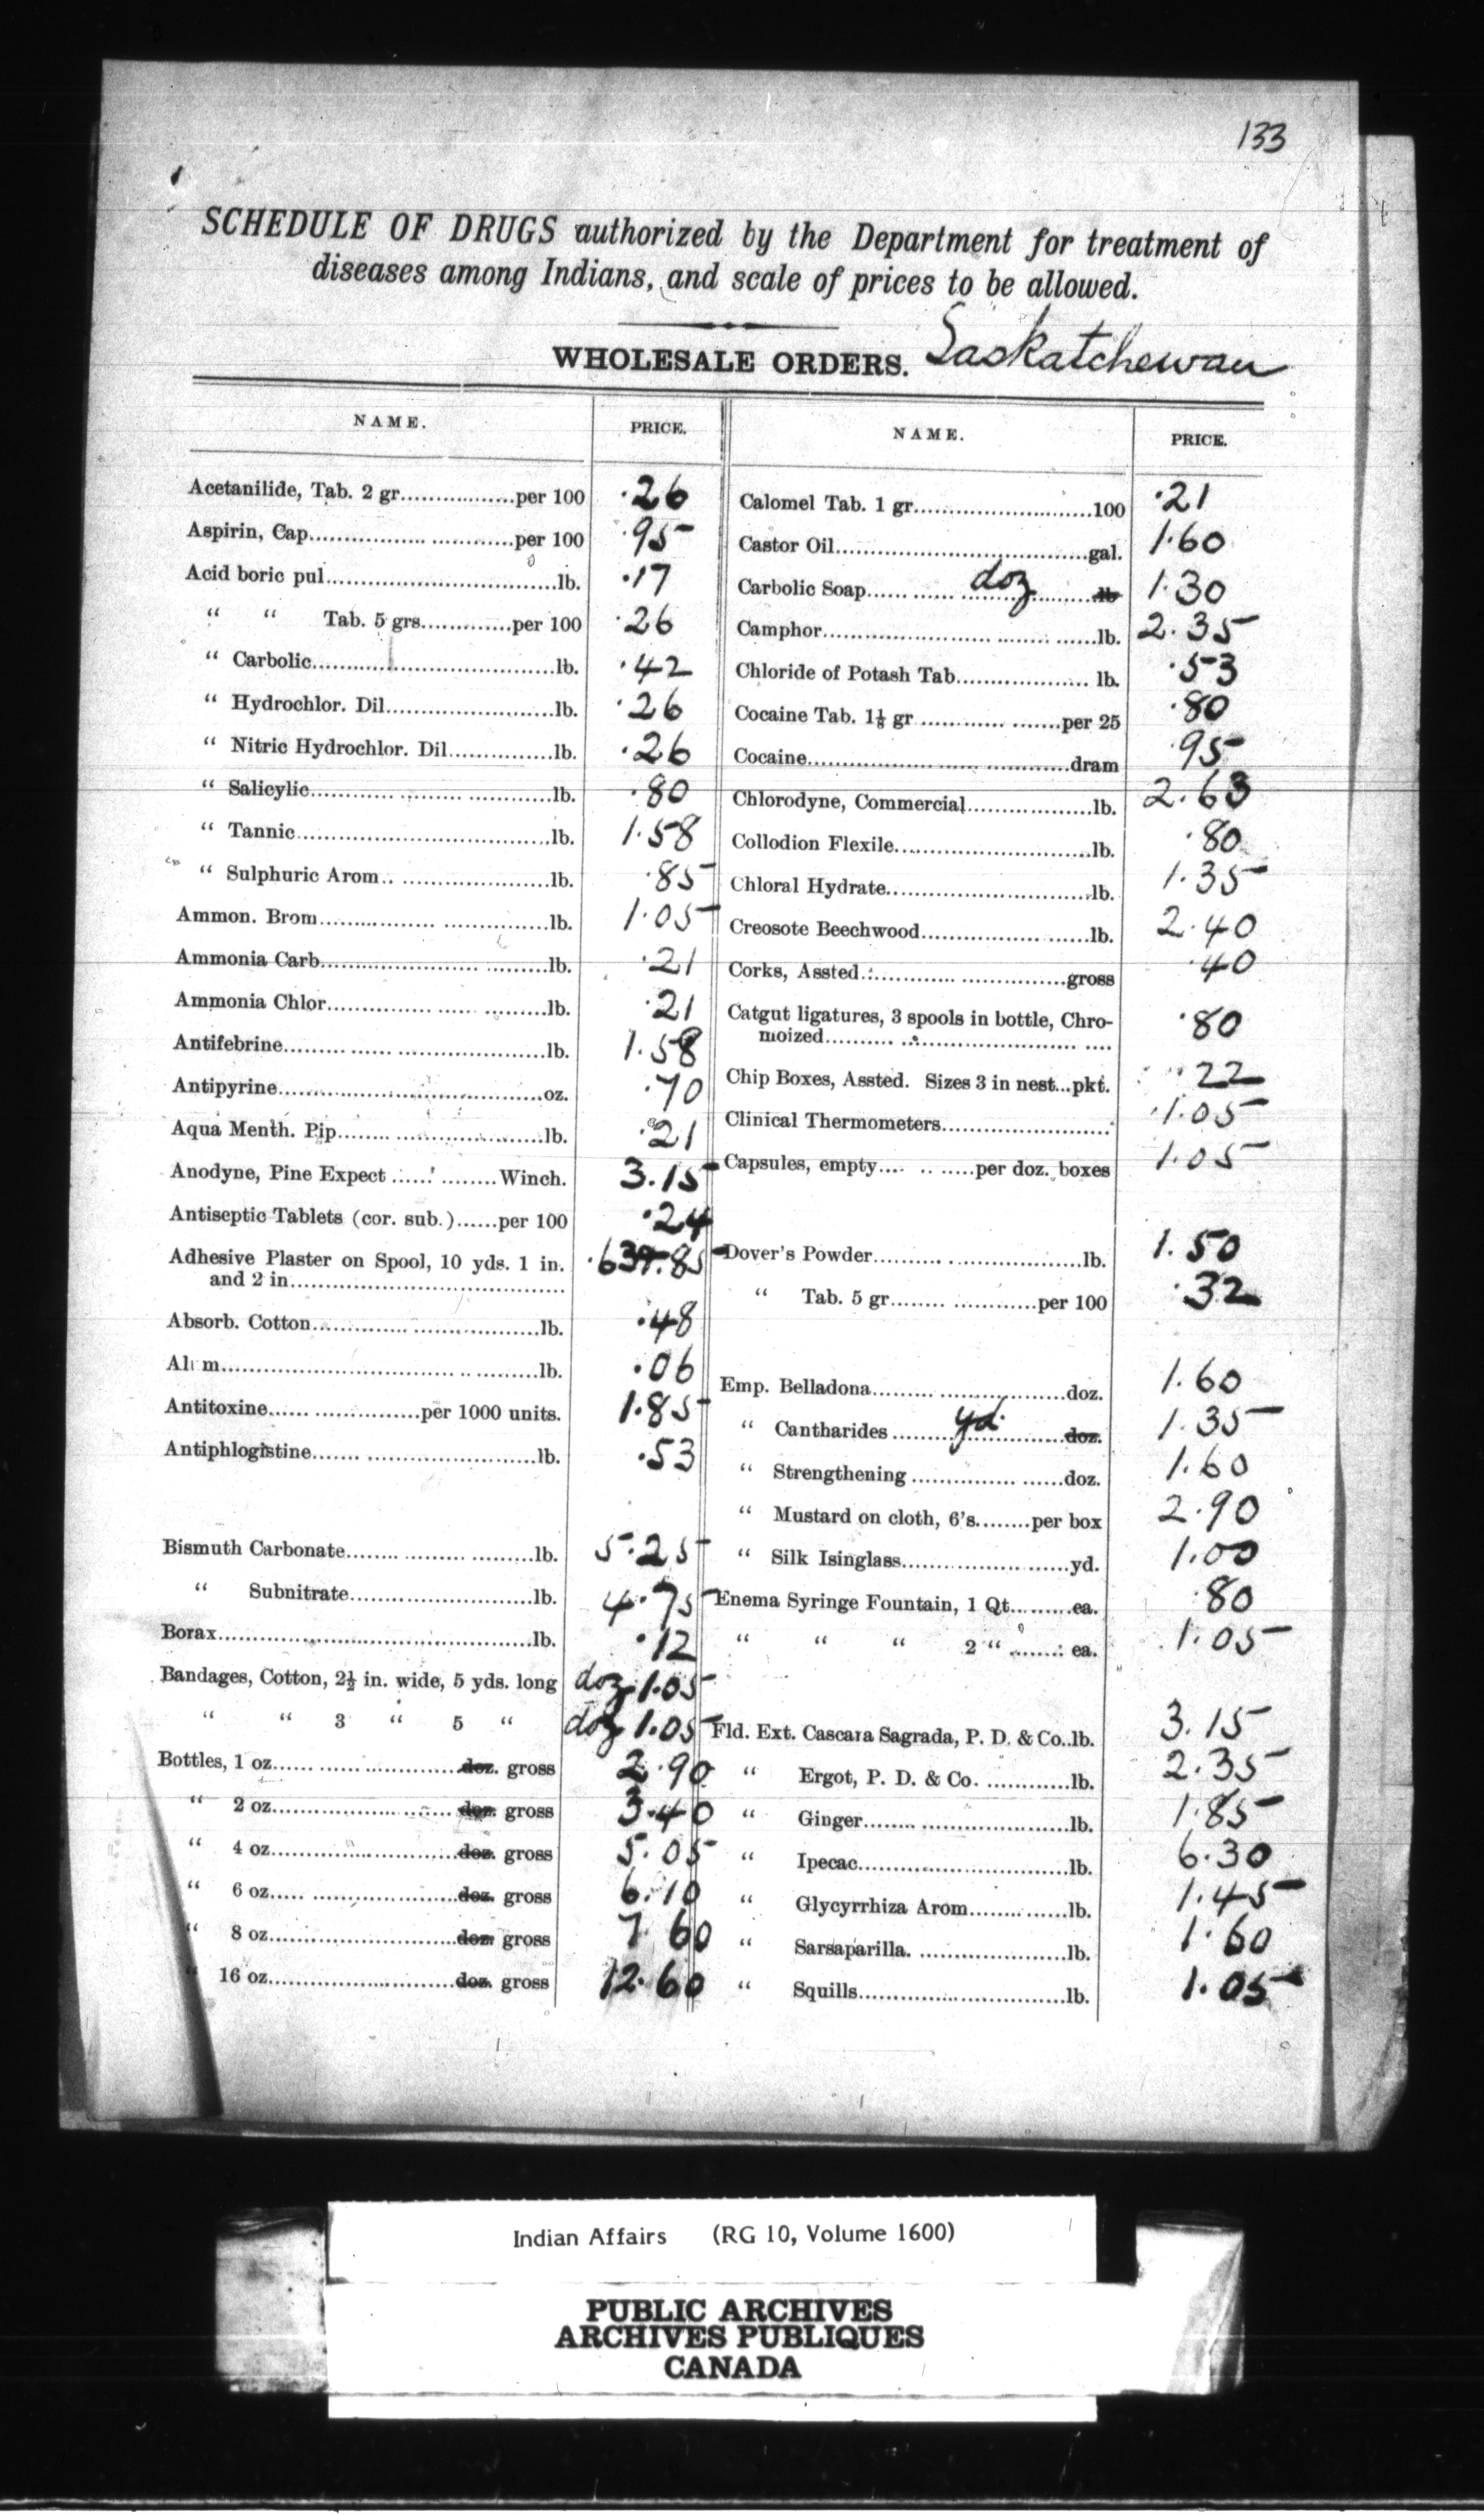 133
SCHEDULE OF DRUGS authorized by the Department for treatment of
diseases among Indians, and scale of prices to be allowed.
WHOLESALE ORDERS. Saskatchewan
NAME. PRICE.
Acetanilide, Tab. 2 gr.................per 100 .26
Aspirin, Cap.................per 100 .95
Acid boric pul.................lb. .17
“ “ Tab. 5 grs.............per 100 .26
“ Carbolic.................lb. .42
“ Hydrochlor. Dil.................lb. .26
“ Nitric Hydrochlor. Dil...............lb. .26
“ Salicylic.................lb. .80
“ Tannic.................lb. 1.58
“ Sulphuric Arom.................lb. .85
Ammon. Brom.................lb. 1.05
Ammonia Carb.................lb. .21
Ammonia Chlor.................lb. .21
Antifebrine.................lb. 1.58
Antipyrine.................oz. .70
Aqua Menth. Pip.................lb. .21
Anodyne, Pine Expect .............. Winch. 3.15
Antiseptic Tablets (cor. sub.)......per 100 .24
Adhesive Plaster on Spool, 10 yds. 1 in.
and 2 in.................
Absorb. Cotton.................lb. .48
Al m.................lb. .06
Antitoxine.................per 1000 units. 1.85
Antiphlogistine.................lb. .53
Bismuth Carbonate.................lb. 5.25
“ Subnitrate.................lb. 4.75
Borax.................lb. .12
Bandages, Cotton, 2½ in. wide, 5 yds. long doz 1.05
“ “ 3 “ 5 “ doz 1.05
Bottles, 1 oz.................doz. gross 2.90
“ 2 oz.................doz. gross 3.40
“ 4 oz.................doz. gross 5.05
“ 6 oz.................doz. gross 6.10
“ 8 oz.................doz. gross 7.60
“ 16 oz.................doz. gross 12.60
NAME. PRICE.
Calomel Tab. 1 gr.................100 .21
Castor Oil.................gal. 1.60
Carbolic Soap.................doz lb 1.30
Camphor.................lb. 2.35
Chloride of Potash Tab................. lb. .53
Cocaine Tab. 1⅛ gr .................per 25 .80
Cocaine.................dram .95
Chlorodyne, Commercial.................lb. 2.63
Collodion Flexile.................lb. .80
Chloral Hydrate.................lb. 1.35
Creosote Beechwood.................lb. 2.40
Corks, Assted.................gross .40
Catgut ligatures, 3 spools in bottle, Chro-
moized................. .80
Chip Boxes, Assted. Sizes 3 in nest...pkt. .22
Clinical Thermometers................. 1.05
Capsules, empty.................per doz. boxes 1.05
Dover's Powder.................lb. 1.50
“ Tab. 5 gr.................per 100 .32
Emp. Belladona.................doz. 1.60
“ Cantharides .................yd. doz. 1.35
“ Strengthening .................doz. 1.60
“ Mustard on cloth, 6's........per box 2.90
“ Silk Isinglass.................yd. 1.00
Enema Syringe Fountain, 1 Qt..........ea. .80
“ “ “ 2 “ ........ ea. 1.05
Fld. Ext. Cascara Sagrada, P. D. & Co..lb. 3.15
“ Ergot, P. D. & Co. ............lb. 2.35
“ Ginger.................lb. 1.85
“ Ipecac.................lb. 6.30
“ Glycyrrhiza Arom..............lb. 1.45
“ Sarsaparilla. .................lb. 1.60
“ Squills.................lb. 1.05
Indian Affairs (RG 10, Volume 1600)
PUBLIC ARCHIVES
ARCHIVES PUBLIQUES
CANADA